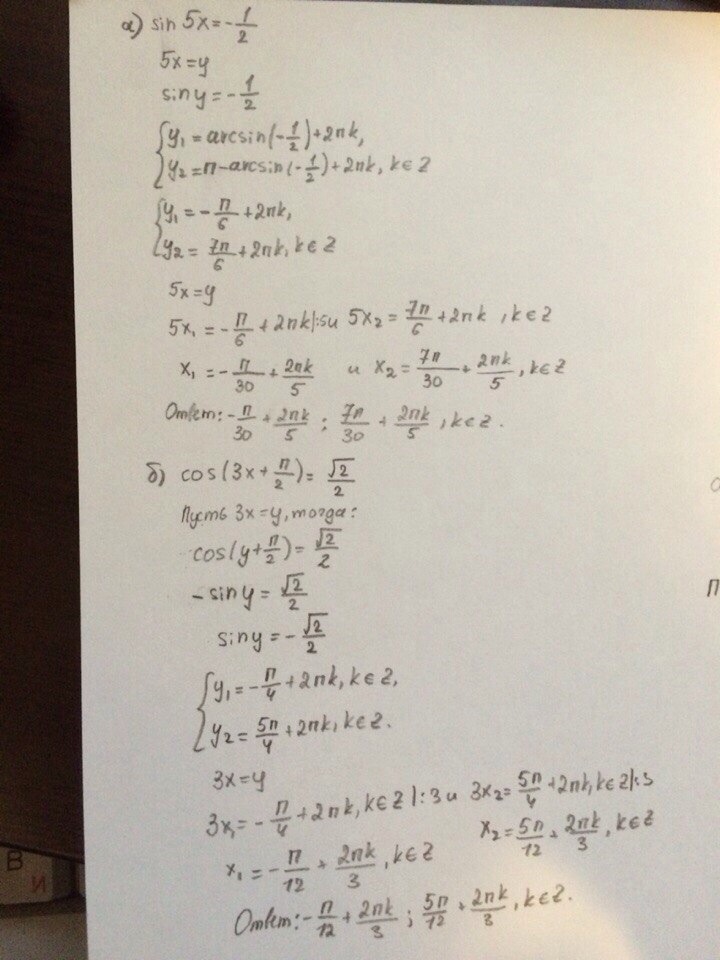 а) sin 5x = -1/2
5x = y
sin y = -1/2
{ y₁ = arcsin(-1/2) + 2πk,
y₂ = π - arcsin(-1/2) + 2πk, k ∈ Z
{ y₁ = -π/6 + 2πk,
y₂ = 7π/6 + 2πk, k ∈ Z
5x = y
5x₁ = -π/6 + 2πk |:5 и 5x₂ = 7π/6 + 2πk, k ∈ Z
x₁ = -π/30 + 2πk/5 и x₂ = 7π/30 + 2πk/5, k ∈ Z
Ответ: -π/30 + 2πk/5; 7π/30 + 2πk/5, k ∈ Z.
б) cos(3x + π/2) = √2/2
Пусть 3x = y, тогда:
cos(y + π/2) = √2/2
-sin y = √2/2
sin y = -√2/2
{ y₁ = -π/4 + 2πk, k ∈ Z,
y₂ = 5π/4 + 2πk, k ∈ Z.
3x = y
3x₁ = -π/4 + 2πk, k ∈ Z |:3 и 3x₂ = 5π/4 + 2πk, k ∈ Z |:3
x₁ = -π/12 + 2πk/3, k ∈ Z x₂ = 5π/12 + 2πk/3, k ∈ Z
Ответ: -π/12 + 2πk/3; 5π/12 + 2πk/3, k ∈ Z.
В
И
П